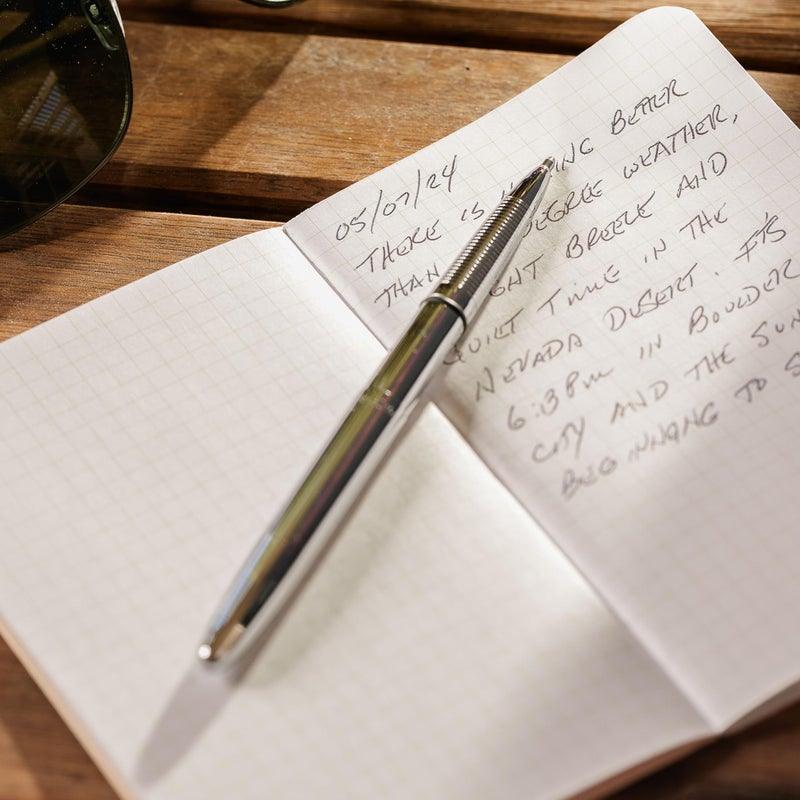 05/07/24
THERE IS ING BETTER
THAN DEGREE WEATHER,
GHT BREEZE AND
QUIET TIME IN THE
NEVADA DESERT. IT'S
6:38PM IN BOULDER
CITY AND THE SUN
BEGINNANG TO S